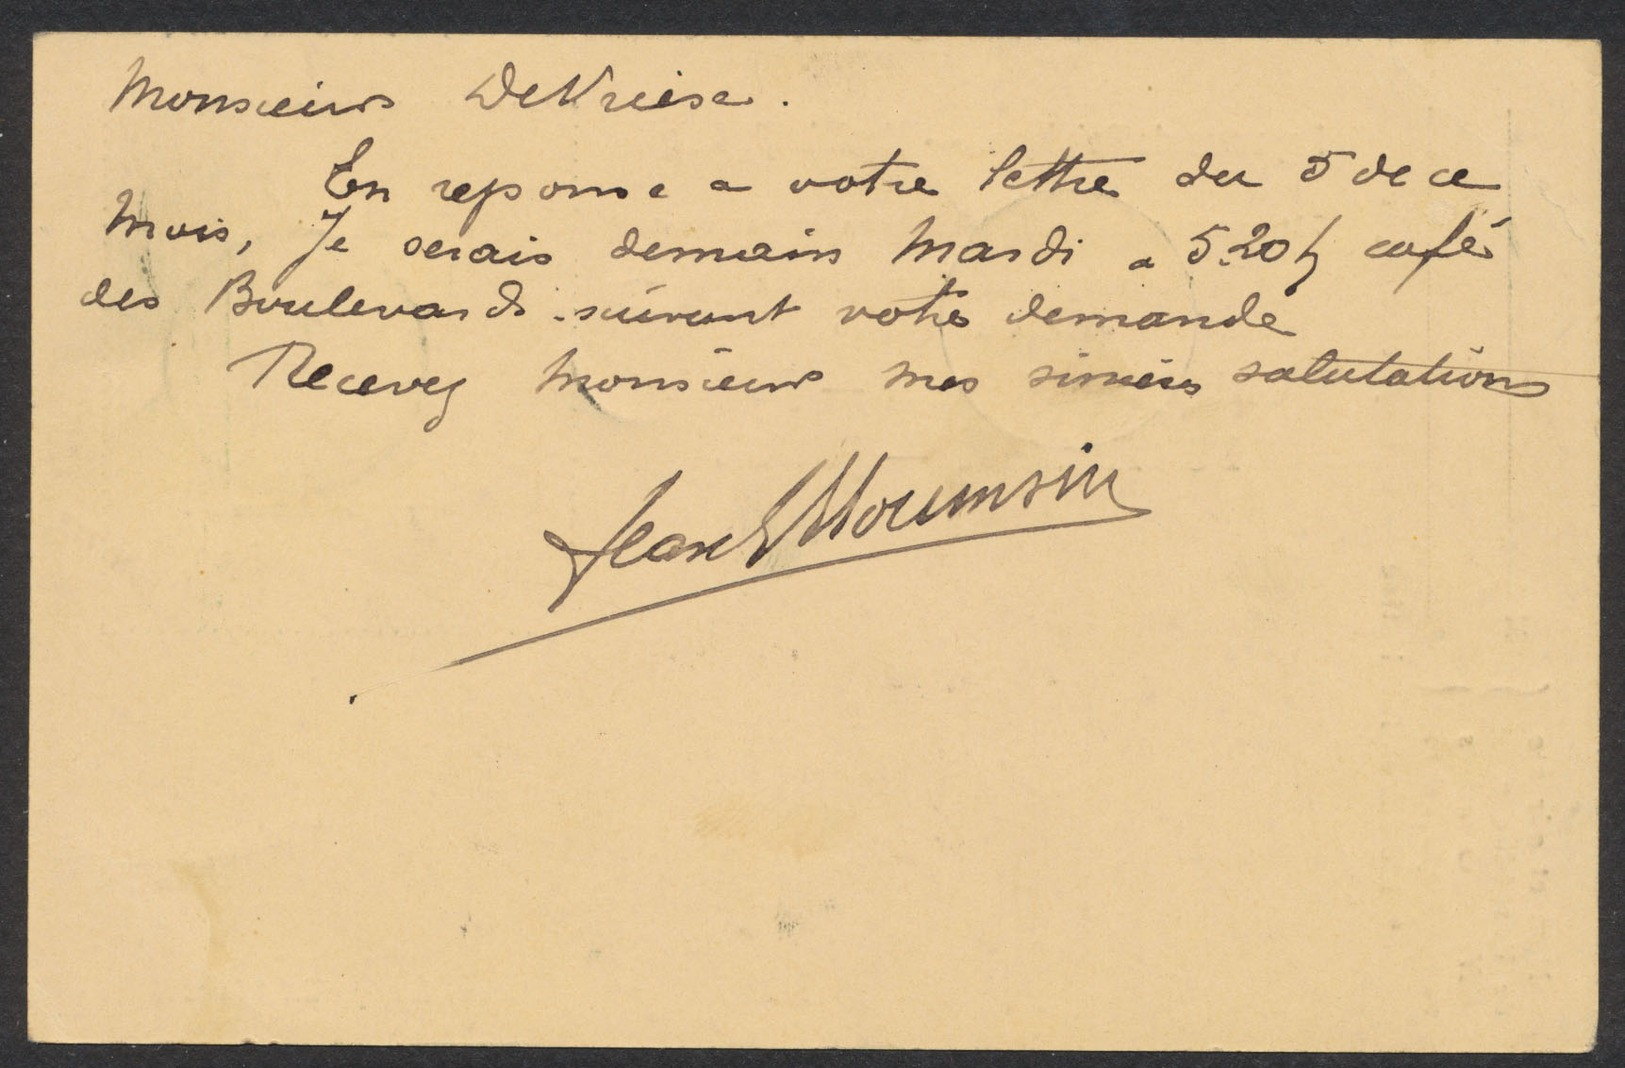 Monsieur DeVriese.
En reponse a votre lettre du 5 de ce
mois, Je serais demain Mardi a 5.20 h café
des Boulevards suivant votre demande
Recevez monsieur mes sincères salutations
Jean